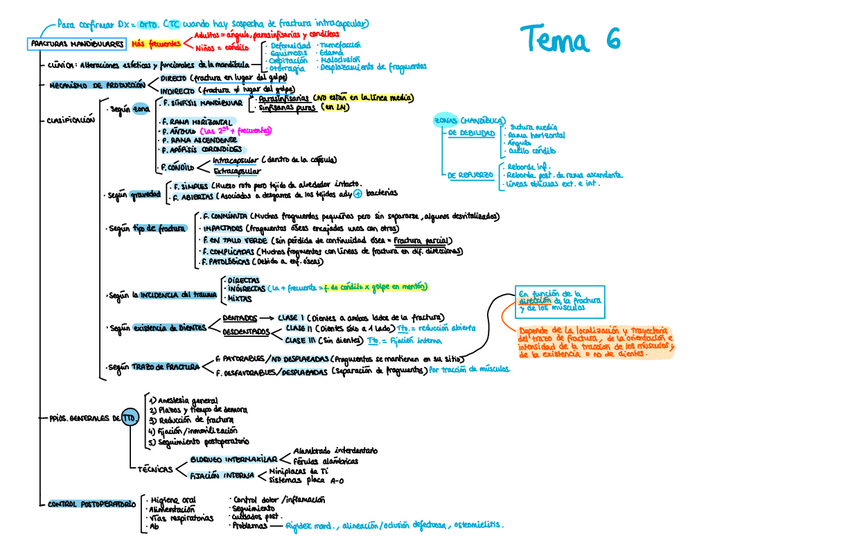 Para confirmar DX = Orto. (TC cuando hay sospecha de fractura intracapsular)
Tema 6
FRACTURAS MANDIBULARES
Más frecuentes
Adultos = ángulo, parasinfisarias y condíleas
Niños = cóndilo
CLÍNICA: Alteraciones estéticas y funcionales de la mandíbula
· Deformidad
· Equimosis
· Crepitación
· Otorragia
· Tumefacción
· Edema
· Maloclusión
· Desplazamiento de fragmentos
MECANISMO DE PRODUCCIÓN
DIRECTO (fractura en lugar del golpe)
INDIRECTO (fractura ≠ lugar del golpe)
CLASIFICACIÓN
· Según zona
· F. SÍNFISIS MANDIBULAR
· Parasinfisarias (No están en la línea media)
· Sinfisarias puras (en LM)
· F. RAMA HORIZONTAL
· F. ÁNGULO (Las 2ªs + frecuentes)
· F. RAMA ASCENDENTE
· F. APÓFISIS CORONOIDES
· F. CÓNDILO
Intracapsular (dentro de la cápsula)
Extracapsular
ZONAS (MANDÍBULA)
DE DEBILIDAD
· Sutura media
· Rama horizontal
· Ángulo
· Cuello cóndilo
DE REFUERZO
· Reborde inf.
· Reborde post. de rama ascendente
· Líneas oblicuas ext. e int.
· Según gravedad
· F. SIMPLES (Hueso roto pero tejido de alrededor intacto.
· F. ABIERTAS (Asociadas a desgarros de los tejidos ady + bacterias
· Según tipo de fractura
· F. CONMINUTA (Muchos fragmentos pequeños pero sin separarse, algunos desvitalizados)
· IMPACTADOS (Fragmentos óseos encajados unos con otros)
· F. EN TALLO VERDE (Sin pérdida de continuidad ósea = Fractura parcial)
· F. COMPLICADAS (Muchos fragmentos con líneas de fractura en dif. direcciones)
· F. PATOLÓGICAS (Debido a enf. óseas)
· Según la INCIDENCIA del trauma
· DIRECTAS
· INDIRECTAS (La + frecuente = f. de cóndilo x golpe en mentón)
· MIXTAS
· Según existencia de DIENTES
DENTADOS → CLASE I (Dientes a ambos lados de la fractura)
DESDENTADOS
CLASE II (Dientes sólo a 1 lado) Tto. = reducción abierta
CLASE III (Sin dientes) Tto. = Fijación interna
· Según TRAZO DE FRACTURA
F. FAVORABLES / NO DESPLAZADAS (Fragmentos se mantienen en su sitio)
F. DESFAVORABLES / DESPLAZADAS (Separación de fragmentos) Por tracción de músculos.
En función de la
dirección de la fractura
y de los músculos
Depende de la localización y trayectoria
del trazo de fractura, de la orientación e
intensidad de la tracción de los músculos y
de la existencia o no de dientes.
PPIOS. GENERALES DE TTO
1) Anestesia general
2) Plazos y tiempo de demora
3) Reducción de fractura
4) Fijación / inmovilización
5) Seguimiento postoperatorio
TÉCNICAS
BLOQUEO INTERMAXILAR
Alambrado interdentario
Férulas alámbricas
FIJACIÓN INTERNA
Miniplacas de Ti
Sistemas placa A-O
CONTROL POSTOPERATORIO
· Higiene oral
· Alimentación
· Vías respiratorias
· Ab
· Control dolor / inflamación
· Seguimiento
· Cuidados post.
· Problemas — Rigidez mand., alineación/oclusión defectuosa, osteomielitis.